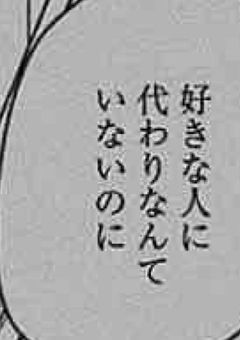 好きな人に
代わりなんて
いないのに